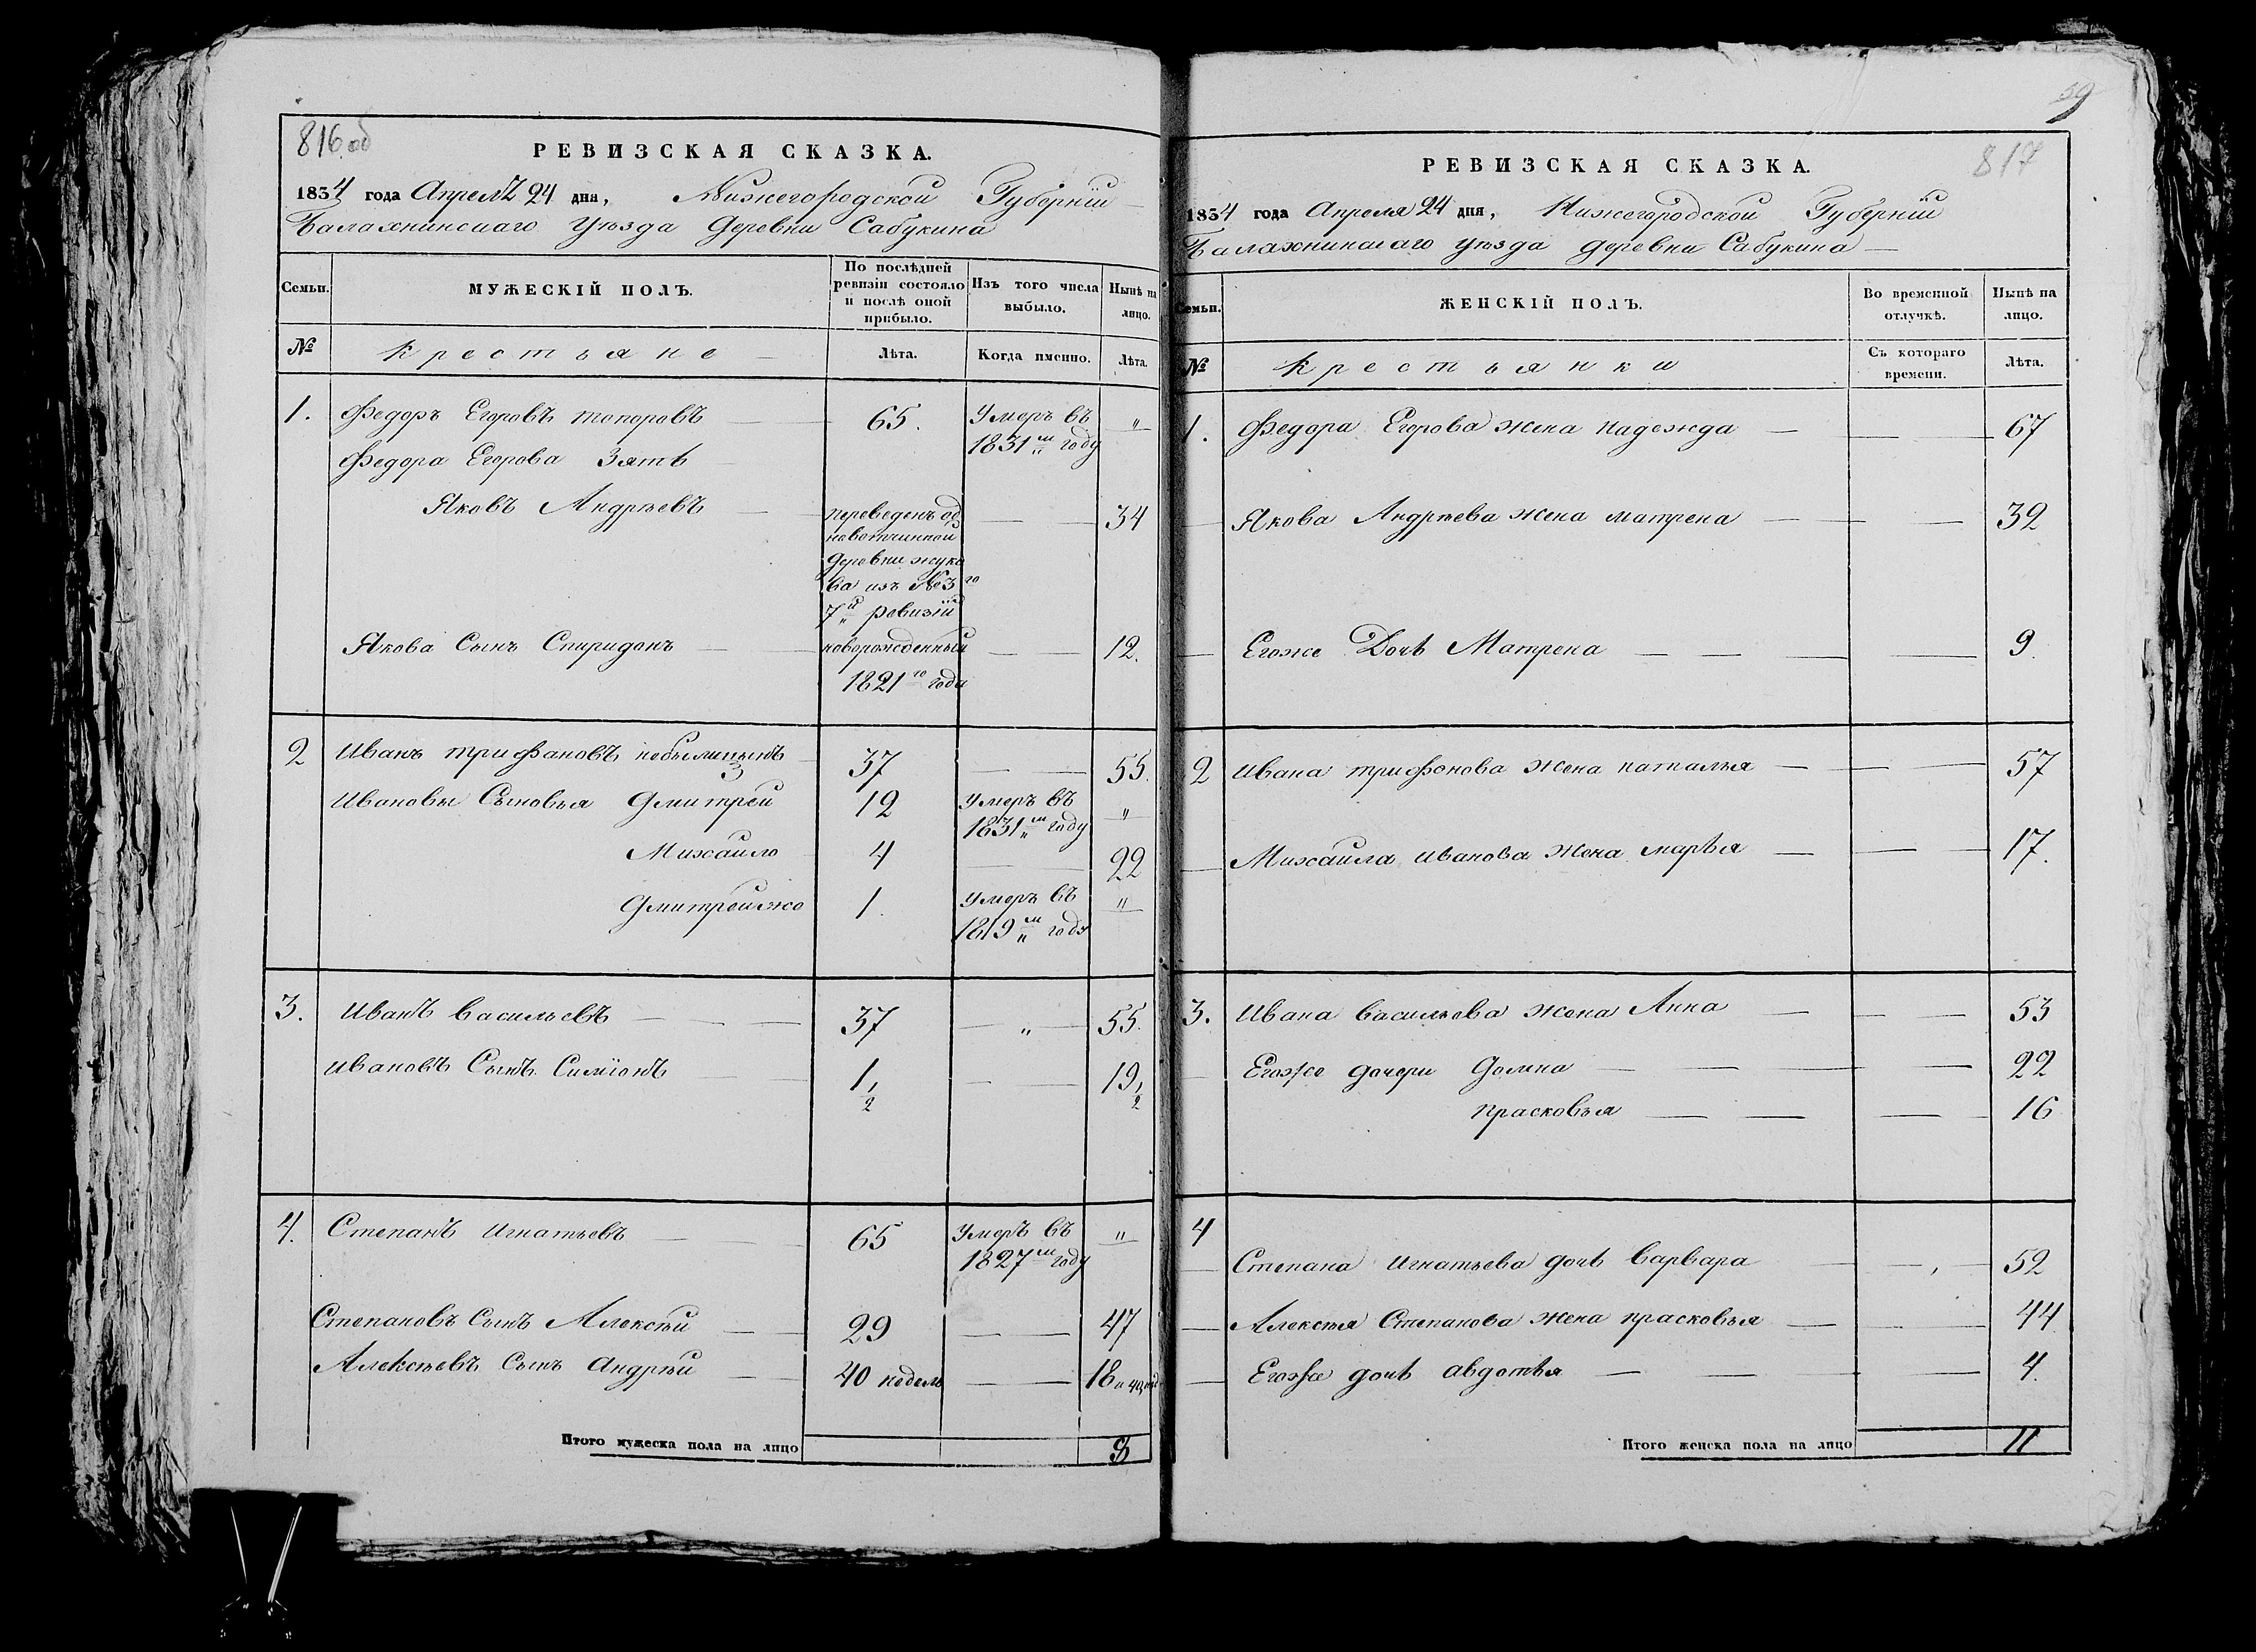 816 об
РЕВИЗСКАЯ СКАЗКА.
1834 года Апреля 24 дня, Нижегородской Губернiи
Балахнинскаго уѣзда деревни Сабукина
Семьи.
МУЖЕСКIЙ ПОЛЪ.
По послѣдней
ревизiи состояло
и послѣ оной
прибыло.
Изъ того числа
выбыло.
Нынѣ на
лицо.
№
Крестьяне
Лѣта.
Когда именно.
Лѣта.
1. Федоръ Егоровъ топоровъ 65. Умеръ въ "
1831м году
Федора Егорова Зять
Яковъ Андрѣевъ переведенъ од 34
новотчинной
деревни жуко
ва изъ №3го
7й ревизiи
Якова Сынъ Спиридонъ новорожденный 12.
1821го года
2 Иванъ трифановъ 37 55.
Ивановы Сыновья Дмитрей 12 Умеръ въ "
1831м году
Михайло 4 22
Дмитрейже 1. Умеръ въ "
1819м году
3. Иванъ Васильевъ 37 " 55.
Ивановъ Сынъ Симiонъ 1 1/2 19 1/2
4. Степанъ Игнатьевъ 65 Умеръ въ "
1827м году
Степановъ Сынъ Алексѣй 29 47
Алексѣевъ Сынъ Андрѣй 40 недель 18 и 40 нед
Итого мужеска пола на лицо 8
59
817
РЕВИЗСКАЯ СКАЗКА.
1834 года Апреля 24 дня, Нижегородской Губернiи
Балахнинскаго уѣзда деревни Сабукина
Семьи.
ЖЕНСКIЙ ПОЛЪ.
Во временной
отлучкѣ.
Нынѣ на
лицо.
№
Крестьянки
Съ котораго
времени.
Лѣта.
1. Федора Егорова жена надежда 67
Якова Андрѣева жена матрена 32
Егоже Дочь Матрена 9.
2 Ивана трифонова жена наталья 57
Михайла иванова жена марья 17.
3. Ивана васильева жена Анна 53
Егоже дочери домна 22
прасковья 16
4
Степана игнатьева дочь варвара 52
Алексѣя Степанова жена прасковья 44
Егоже дочь авдотья 4.
Итого женска пола на лицо 11